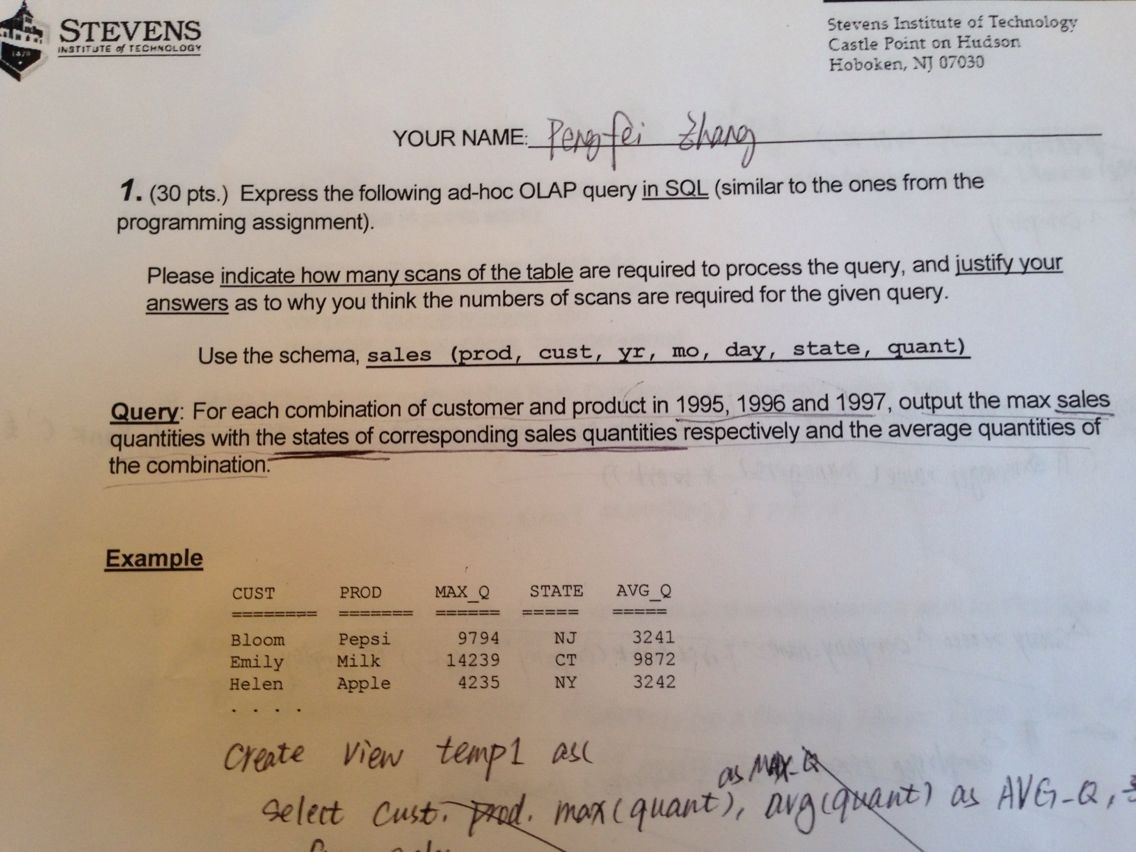 STEVENS
INSTITUTE of TECHNOLOGY
1870
Stevens Institute of Technology
Castle Point on Hudson
Hoboken, NJ 07030
YOUR NAME: Pengfei Zhang
1. (30 pts.) Express the following ad-hoc OLAP query in SQL (similar to the ones from the
programming assignment).
Please indicate how many scans of the table are required to process the query, and justify your
answers as to why you think the numbers of scans are required for the given query.
Use the schema, sales (prod, cust, yr, mo, day, state, quant)
Query: For each combination of customer and product in 1995, 1996 and 1997, output the max sales
quantities with the states of corresponding sales quantities respectively and the average quantities of
the combination.
Example
CUST PROD MAX_Q STATE AVG_Q
======== ======= ====== ===== =====
Bloom Pepsi 9794 NJ 3241
Emily Milk 14239 CT 9872
Helen Apple 4235 NY 3242
. . . .
Create View temp1 as
as MAX_Q
select cust, prod, max(quant), avg(quant) as AVG_Q,